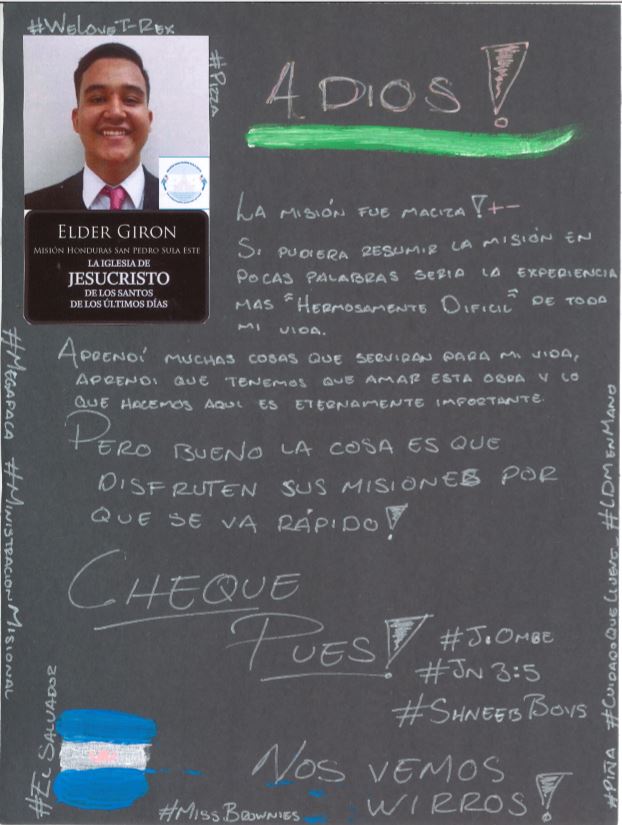 #WeLoveT-Rex
#Pizza
ADIOS!
ELDER GIRON
MISIÓN HONDURAS SAN PEDRO SULA ESTE
LA IGLESIA DE
JESUCRISTO
DE LOS SANTOS
DE LOS ÚLTIMOS DÍAS
LA MISIÓN FUE MACIZA! +-
SI PUDIERA RESUMIR LA MISIÓN EN
POCAS PALABRAS SERIA LA EXPERIENCIA
MAS "HERMOSAMENTE DIFICIL" DE TODA
MI VIDA.
APRENDÍ MUCHAS COSAS QUE SERVIRAN PARA MI VIDA,
APRENDI QUE TENEMOS QUE AMAR ESTA OBRA Y LO
QUE HACEMOS AQUI ES ETERNAMENTE IMPORTANTE.
PERO BUENO LA COSA ES QUE
DISFRUTEN SUS MISIONES POR
QUE SE VA RÁPIDO!
CHEQUE
PUES!
#J.OMBE
#JN 3:5
#SHNEEBBOYS
NOS VEMOS
WIRROS!
#MISSBROWNIES
#EL SALVADOR
#MEGAPACA #MINISTRACIONMISIONAL
#PIÑA #CUIDADOQUELLUEVE #LDMENMANO